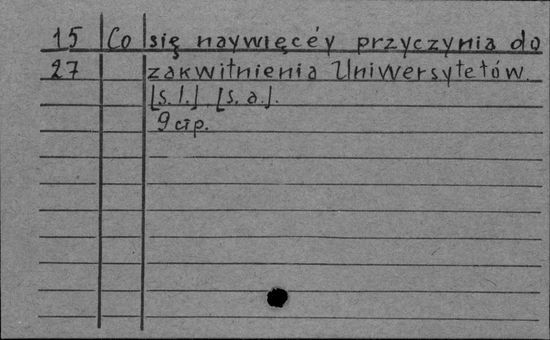 15 Co się naywięcéy przyczynia do
27 zakwitnienia Uniwersytetów.
[s. l.], [s. a.].
9 стр.